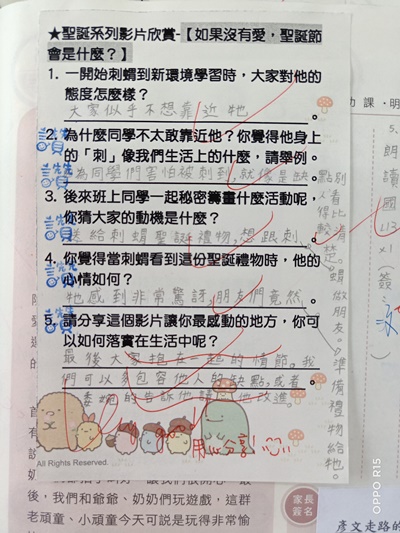 ★聖誕系列影片欣賞-【如果沒有愛,聖誕節
會是什麼?】
1. 一開始刺蝟到新環境學習時,大家對他的
態度怎麼樣?
大家似乎不想靠近牠。
2. 為什麼同學不太敢靠近他?你覺得他身上
的「刺」像我們生活上的什麼,請舉例。
為同學們害怕被刺到,就像是缺點別人看得比較清楚。
3. 後來班上同學一起秘密籌畫什麼活動呢,
你猜大家的動機是什麼?
送給刺蝟聖誕禮物,想跟刺蝟做朋友。
4. 你覺得當刺蝟看到這份聖誕禮物時,他的
心情如何?
牠感到非常驚訝,朋友們竟然準備禮物給牠。
5. 請分享這個影片讓你最感動的地方,你可
以如何落實在生活中呢?
最後大家抱在一起的情節。我
們可以多包容他人的缺點,或者
委婉的告訴他請他改進。
讚
讚
讚
讚
用心分享!
All Rights Reserved.
功課‧明
5.
朗讀國L13x1(簽
後,我們和爺爺、奶奶們玩遊戲,這群
老頑童、小頑童今天可說是玩得非常愉
家長
簽名
彥文走路的
OPPO R15